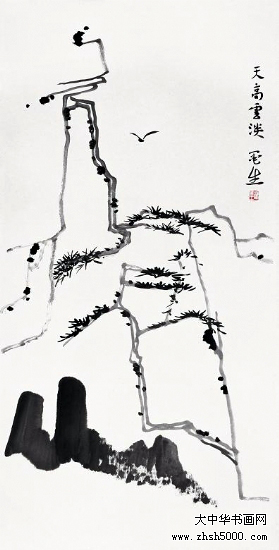 天高雲淡
大中华书画网
www.zhsh5000.com